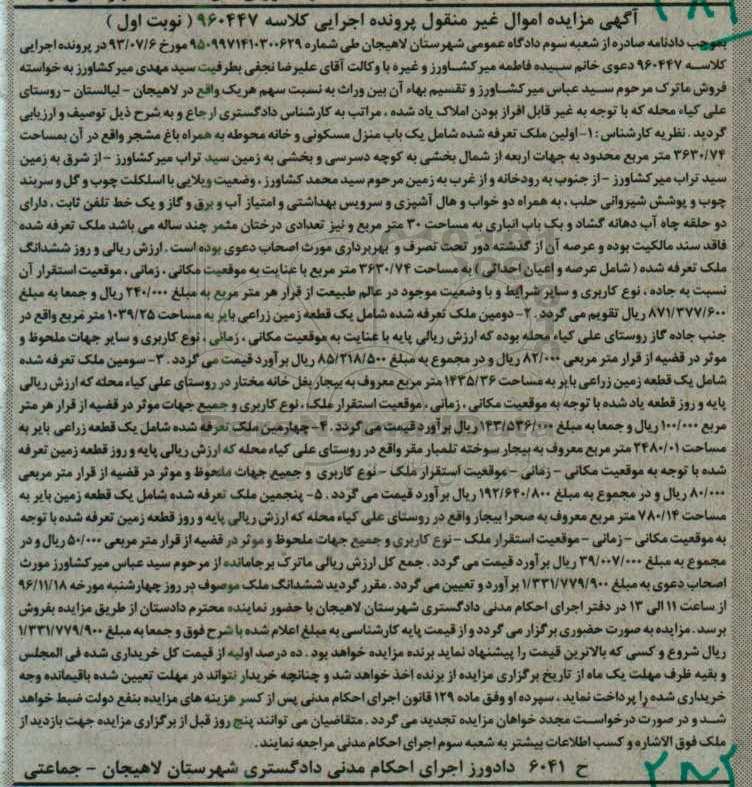 آگهی مزایده اموال غیر منقول پرونده اجرایی کلاسه ۹۶۰۴۴۷ ( نوبت اول )
بموجب دادنامه صادره از شعبه سوم دادگاه عمومی شهرستان لاهیجان طی شماره ۹۵۰۹۹۷۱۴۱۰۳۰۰۶۲۹ مورخ ۹۳/۰۷/۶ در پرونده اجرایی
کلاسه ۹۶۰۴۴۷ دعوی خانم سیده فاطمه میرکشاورز و غیره با وکالت آقای علیرضا نجفی بطرفیت سید مهدی میرکشاورز به خواسته
فروش ماترک مرحوم سید عباس میرکشاورز و تقسیم بهاء آن بین وراث به نسبت سهم هریک واقع در لاهیجان - لیالستان - روستای
علی کیاء محله که با توجه به غیر قابل افراز بودن املاک یاد شده ، مراتب به کارشناس دادگستری ارجاع و به شرح ذیل توصیف و ارزیابی
گردید . نظریه کارشناس : ۱- اولین ملک تعرفه شده شامل یک باب منزل مسکونی و خانه محوطه به همراه باغ مشجر واقع در آن بمساحت
۳۶۳۰/۷۴ متر مربع محدود به جهات اربعه از شمال بخشی به کوچه دسرسی و بخشی به زمین سید تراب میرکشاورز - از شرق به زمین
سید تراب میرکشاورز - از جنوب به رودخانه و از غرب به زمین مرحوم سید محمد کشاورز . وضعیت ویلایی با اسلکلت چوب و گل و سربند
چوب و پوشش شیروانی حلب ، به همراه دو خواب و هال آشپزی و سرویس بهداشتی و امتیاز آب و برق و گاز و یک خط تلفن ثابت ، دارای
دو حلقه چاه آب دهانه گشاد و یک باب انباری به مساحت ۳۰ متر مربع و نیز تعدادی درختان مثمر چند ساله می باشد ملک تعرفه شده
فاقد سند مالکیت بوده و عرصه آن از گذشته دور تحت تصرف و بهربرداری مورث اصحاب دعوی بوده است . ارزش ریالی و روز ششدانگ
ملک تعرفه شده ( شامل عرصه و اعیان احداثی ) به مساحت ۳۶۳۰/۷۴ متر مربع با عنایت به موقعیت مکانی ، زمانی ، موقعیت استقرار آن
نسبت به جاده ، نوع کاربری و سایر شرایط و با وضعیت موجود در عالم طبیعت از قرار هر متر مربع به مبلغ ۲۴۰/۰۰۰ ریال و جمعا به مبلغ
۸۷۱/۳۷۷/۶۰۰ ریال تقویم می گردد . ۲- دومین ملک تعرفه شده شامل یک قطعه زمین زراعی بایر به مساحت ۱۰۳۹/۲۵ متر مربع واقع در
جنب جاده گاز روستای علی کیاء محله بوده که ارزش ریالی پایه با عنایت به موقعیت مکانی ، زمانی ، نوع کاربری و سایر جهات ملحوظ و
موثر در قضیه از قرار متر مربعی ۸۲/۰۰۰ ریال و در مجموع به مبلغ ۸۵/۲۱۸/۵۰۰ ریال برآورد قیمت می گردد . ۳- سومین ملک تعرفه شده
شامل یک قطعه زمین زراعی بایر به مساحت ۱۴۳۵/۳۶ متر مربع معروف به بیجار بغل خانه مختار در روستای علی کیاء محله که ارزش ریالی
پایه و روز قطعه یاد شده با توجه به موقعیت مکانی ، زمانی ، موقعیت استقرار ملک ، نوع کاربری و جمیع جهات موثر در قضیه از قرار هر متر
مربع ۱۰۰/۰۰۰ ریال و جمعا به مبلغ ۱۴۳/۵۳۶/۰۰۰ ریال برآورد قیمت می گردد . ۴- چهارمین ملک تعرفه شده شامل یک قطعه زراعی بایر به
مساحت ۲۴۸۰/۰۱ متر مربع معروف به بیجار سوخته تلمبار مقر واقع در روستای علی کیاء محله که ارزش ریالی پایه و روز قطعه زمین تعرفه
شده با توجه به موقعیت مکانی - زمانی - موقعیت استقرار ملک - نوع کاربری و جمیع جهات ملحوظ و موثر در قضیه از قرار متر مربعی
۸۰/۰۰۰ ریال و در مجموع به مبلغ ۱۹۲/۶۴۰/۸۰۰ ریال برآورد قیمت می گردد . ۵- پنجمین ملک تعرفه شده شامل یک قطعه زمین بایر به
مساحت ۷۸۰/۱۴ متر مربع معروف به صحرا بیجار واقع در روستای علی کیاء محله که ارزش ریالی پایه و روز قطعه زمین تعرفه شده با توجه
به موقعیت مکانی - زمانی - موقعیت استقرار ملک - نوع کاربری و جمیع جهات ملحوظ و موثر در قضیه از قرار متر مربعی ۵۰/۰۰۰ ریال و در
مجموع به مبلغ ۳۹/۰۰۷/۰۰۰ ریال برآورد قیمت می گردد . جمع کل ارزش ریالی ماترک برجامانده از مرحوم سید عباس میرکشاورز مورث
اصحاب دعوی به مبلغ ۱/۳۳۱/۷۷۹/۹۰۰ برآورد و تعیین می گردد . مقرر گردید ششدانگ ملک موصوف در روز چهارشنبه مورخه ۹۶/۱۱/۱۸
از ساعت ۱۱ الی ۱۳ در دفتر اجرای احکام مدنی دادگستری شهرستان لاهیجان با حضور نماینده محترم دادستان از طریق مزایده بفروش
برسد . مزایده به صورت حضوری برگزار می گردد و از قیمت پایه کارشناسی به مبلغ اعلام شده با شرح فوق و جمعا به مبلغ ۱/۳۳۱/۷۷۹/۹۰۰
ریال شروع و کسی که بالاترین قیمت را پیشنهاد نماید برنده مزایده خواهد بود . ده درصد اولیه از قیمت کل خریداری شده فی المجلس
و بقیه ظرف مهلت یک ماه از تاریخ برگزاری مزایده از برنده اخذ خواهد شد و چنانچه خریدار نتواند در مهلت تعیین شده باقیمانده وجه
خریداری شده را پرداخت نماید ، سپرده او وفق ماده ۱۲۹ قانون اجرای احکام مدنی پس از کسر هزینه های مزایده بنفع دولت ضبط خواهد
شد و در صورت درخواست مجدد خواهان مزایده تجدید می گردد . متقاضیان می توانند پنج روز قبل از برگزاری مزایده جهت بازدید از
ملک فوق الاشاره و کسب اطلاعات بیشتر به شعبه سوم اجرای احکام مدنی مراجعه نمایند .
ح ۶۰۴۱ دادورز اجرای احکام مدنی دادگستری شهرستان لاهیجان - جماعتی